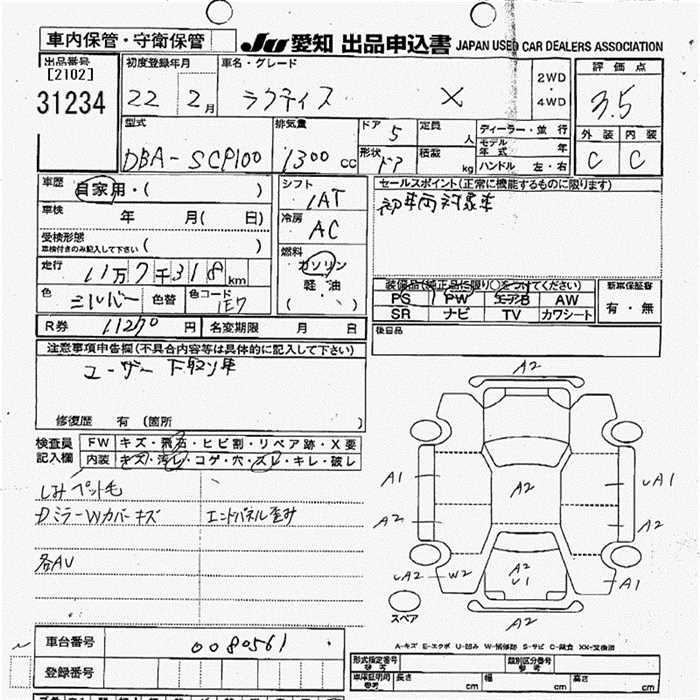 車内保管・守衛保管
JU 愛知 出品申込書 JAPAN USED CAR DEALERS ASSOCIATION
出品番号
[2102]
31234
初度登録年月
22 2月
車名・グレード
ラクティス X
2WD
・
4WD
評価点
3.5
外装 内装
C C
型式
DBA-SCP100
排気量
1300 cc
ドア 5
形状 ドア
定員 人
積載 kg
ディーラー・並行
モデル年式 年
ハンドル 左・右
車歴 自家用・( )
車検 年 月( 日)
受検形態
車検付きのみ記入して下さい ( )
走行 11万7千318km
色 シルバー 色替 色コード 1E7
シフト
IAT
冷房
AC
燃料
ガソリン
軽・油
( )
セールスポイント(正常に機能するものに限ります)
初車両対象車
装備品(純正品に限り○をつけてください)
PS PW エアB AW
SR ナビ TV カワシート
新車保証書
有・無
R券 11270円 名変期限 月 日
後日品
注意事項申告欄(不具合内容等は具体的に記入して下さい)
ユーザー下取り車
修復歴 有(箇所 )
検査員
記入欄
FW キズ・飛石・ヒビ割・リペア跡・X要
内装 キズ・汚レ・コゲ・穴・スレ・キレ・破レ
しみ ペット毛
Dミラーwカバーキズ エンドパネル歪み
各AU
A2
A1 A2 UA1
A2 A2
UA2 W2 A2 U1 A1
A2
スペア
A-キズ E-エクボ U-凹み W-補修跡 S-サビ C-腐食 XX-交換済
車台番号 0080561
登録番号
形式指定番号
参考
類別区分番号
参考
車庫証明用
参考
長さ 幅 高さ